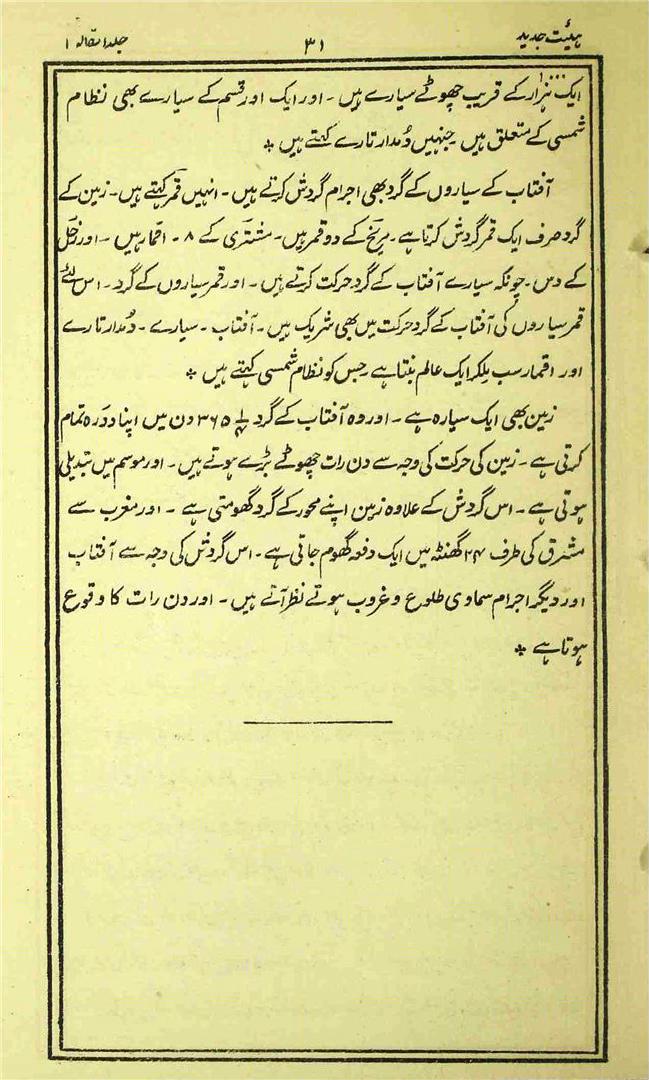 ہیئت جدید ۳۱ جلد ۱ مقالہ ۱
ایک ہزار کے قریب چھوٹے سیارے ہیں ۔ اور ایک اور قسم کے سیارے بھی نظام
شمسی کے متعلق ہیں جنہیں دُمدار تارے کہتے ہیں *
آفتاب کے سیاروں کے گرد بھی اجرام گردش کرتے ہیں ۔ انہیں قمر کہتے ہیں ۔ زمین کے
گرد صرف ایک قمر گردش کرتا ہے ۔ مریخ کے دو قمر ہیں ۔ مشتری کے ۸ ۔ اقمار ہیں ۔ اور زحل
کے دس ۔ چونکہ سیارے آفتاب کے گرد حرکت کرتے ہیں ۔ اور قمر سیاروں کے گرد ۔ اس لئے
قمر سیاروں کی آفتاب کے گرد حرکت میں بھی شریک ہیں ۔ آفتاب ۔ سیارے ۔ دُمدار تارے
اور اقمار سب ملکر ایک عالم بنتا ہے جس کو نظام شمسی کہتے ہیں *
زمین بھی ایک سیارہ ہے ۔ اور وہ آفتاب کے گرد ۳۶۵¼ دن میں اپنا دورہ تمام
کرتی ہے ۔ زمین کی حرکت کی وجہ سے دن رات چھوٹے بڑے ہوتے ہیں ۔ اور موسم میں تبدیلی
ہوتی ہے ۔ اس گردش کے علاوہ زمین اپنے محور کے گرد گھومتی ہے ۔ اور مغرب سے
مشرق کی طرف ۲۴ گھنٹہ میں ایک دفعہ گھوم جاتی ہے ۔ اس گردش کی وجہ سے آفتاب
اور دیگر اجرام سماوی طلوع و غروب ہوتے نظر آتے ہیں ۔ اور دن رات کا وقوع
ہوتا ہے *